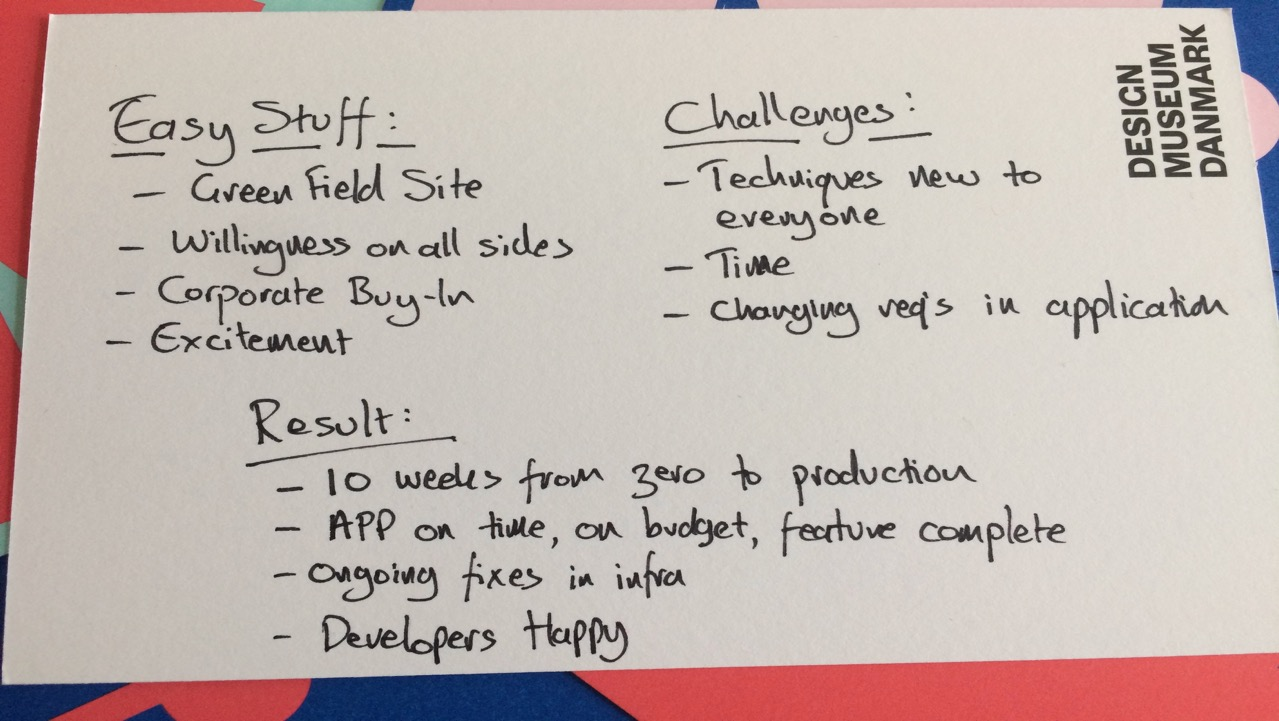 Easy Stuff:
- Green Field Site
- Willingness on all sides
- Corporate Buy-In
- Excitement
Challenges:
- Techniques new to
everyone
- Time
- Changing req's in application
DESIGN
MUSEUM
DANMARK
Result:
- 10 weeks from zero to production
- APP on time, on budget, feature complete
- Ongoing fixes in infra
- Developers Happy